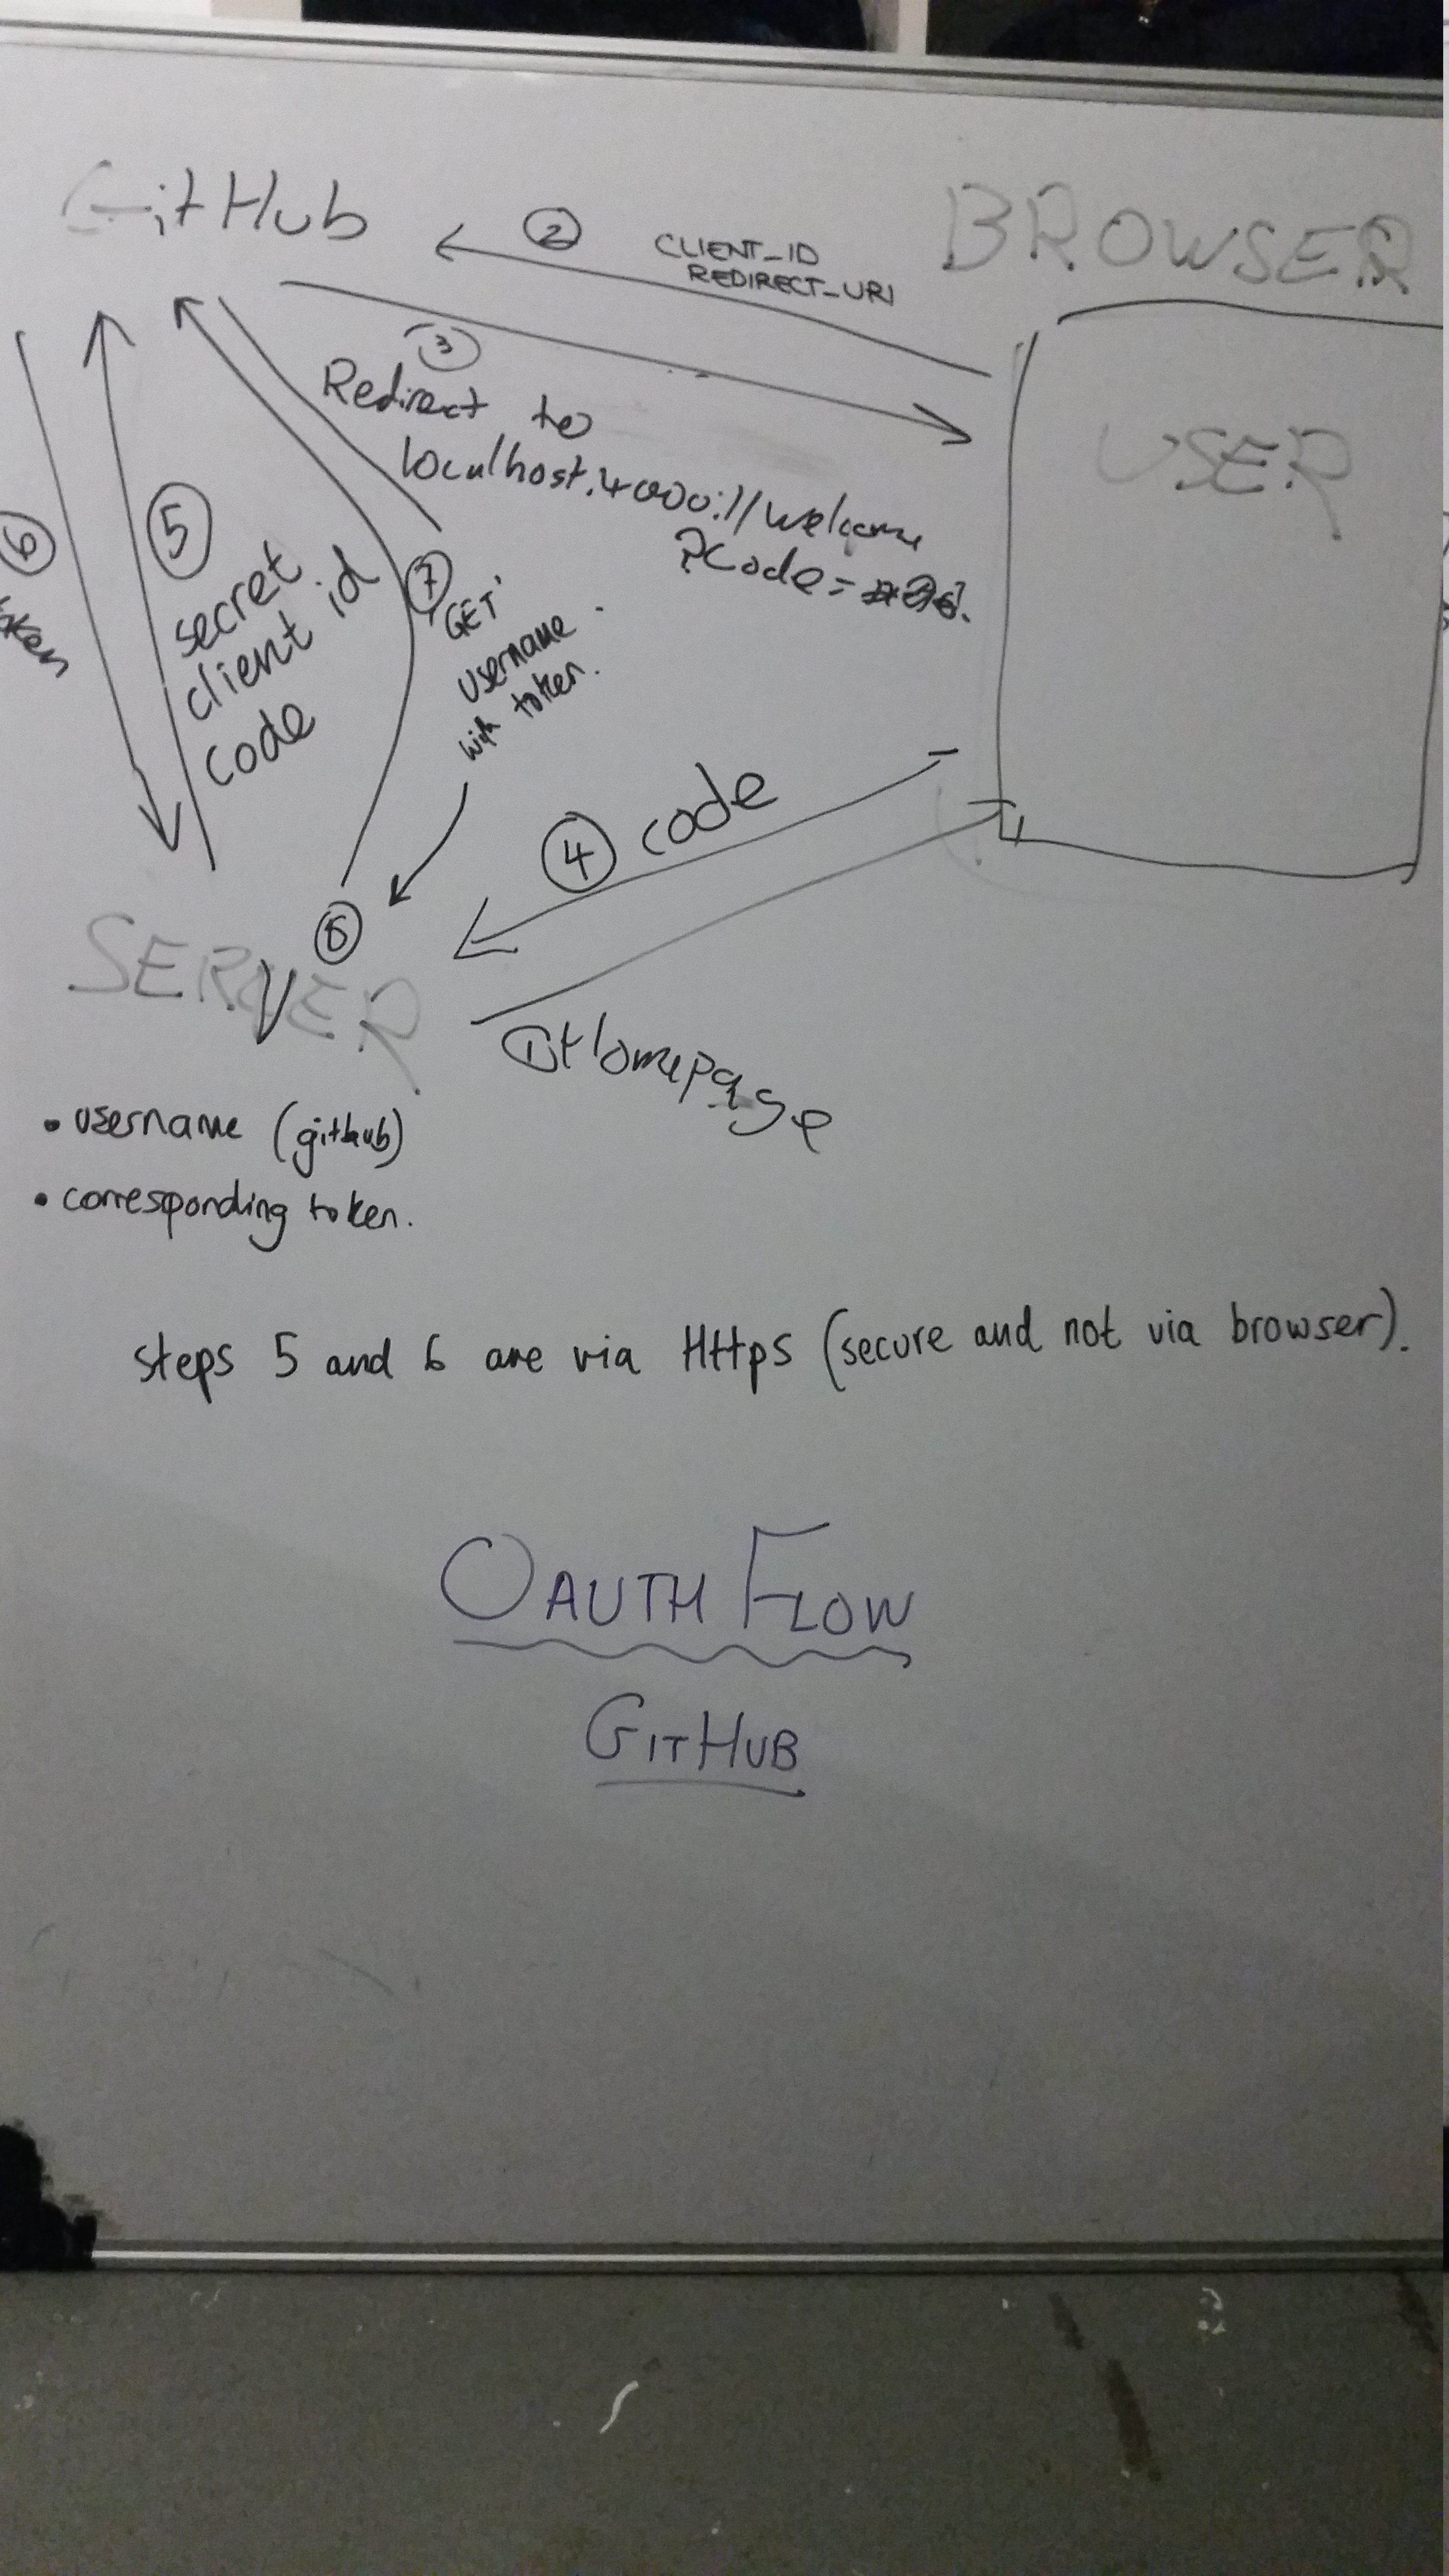 GitHub
BROWSER
②
CLIENT_ID
REDIRECT_URI
③
Redirect to
localhost.4000://welcome
?Code=
USER
⑥
token
⑤
secret
client id
code
⑦
GET
username
with token.
④ code
SERVER
① Homepage
• username (github)
• corresponding token.
steps 5 and 6 are via Https (secure and not via browser).
OAUTH FLOW
GITHUB